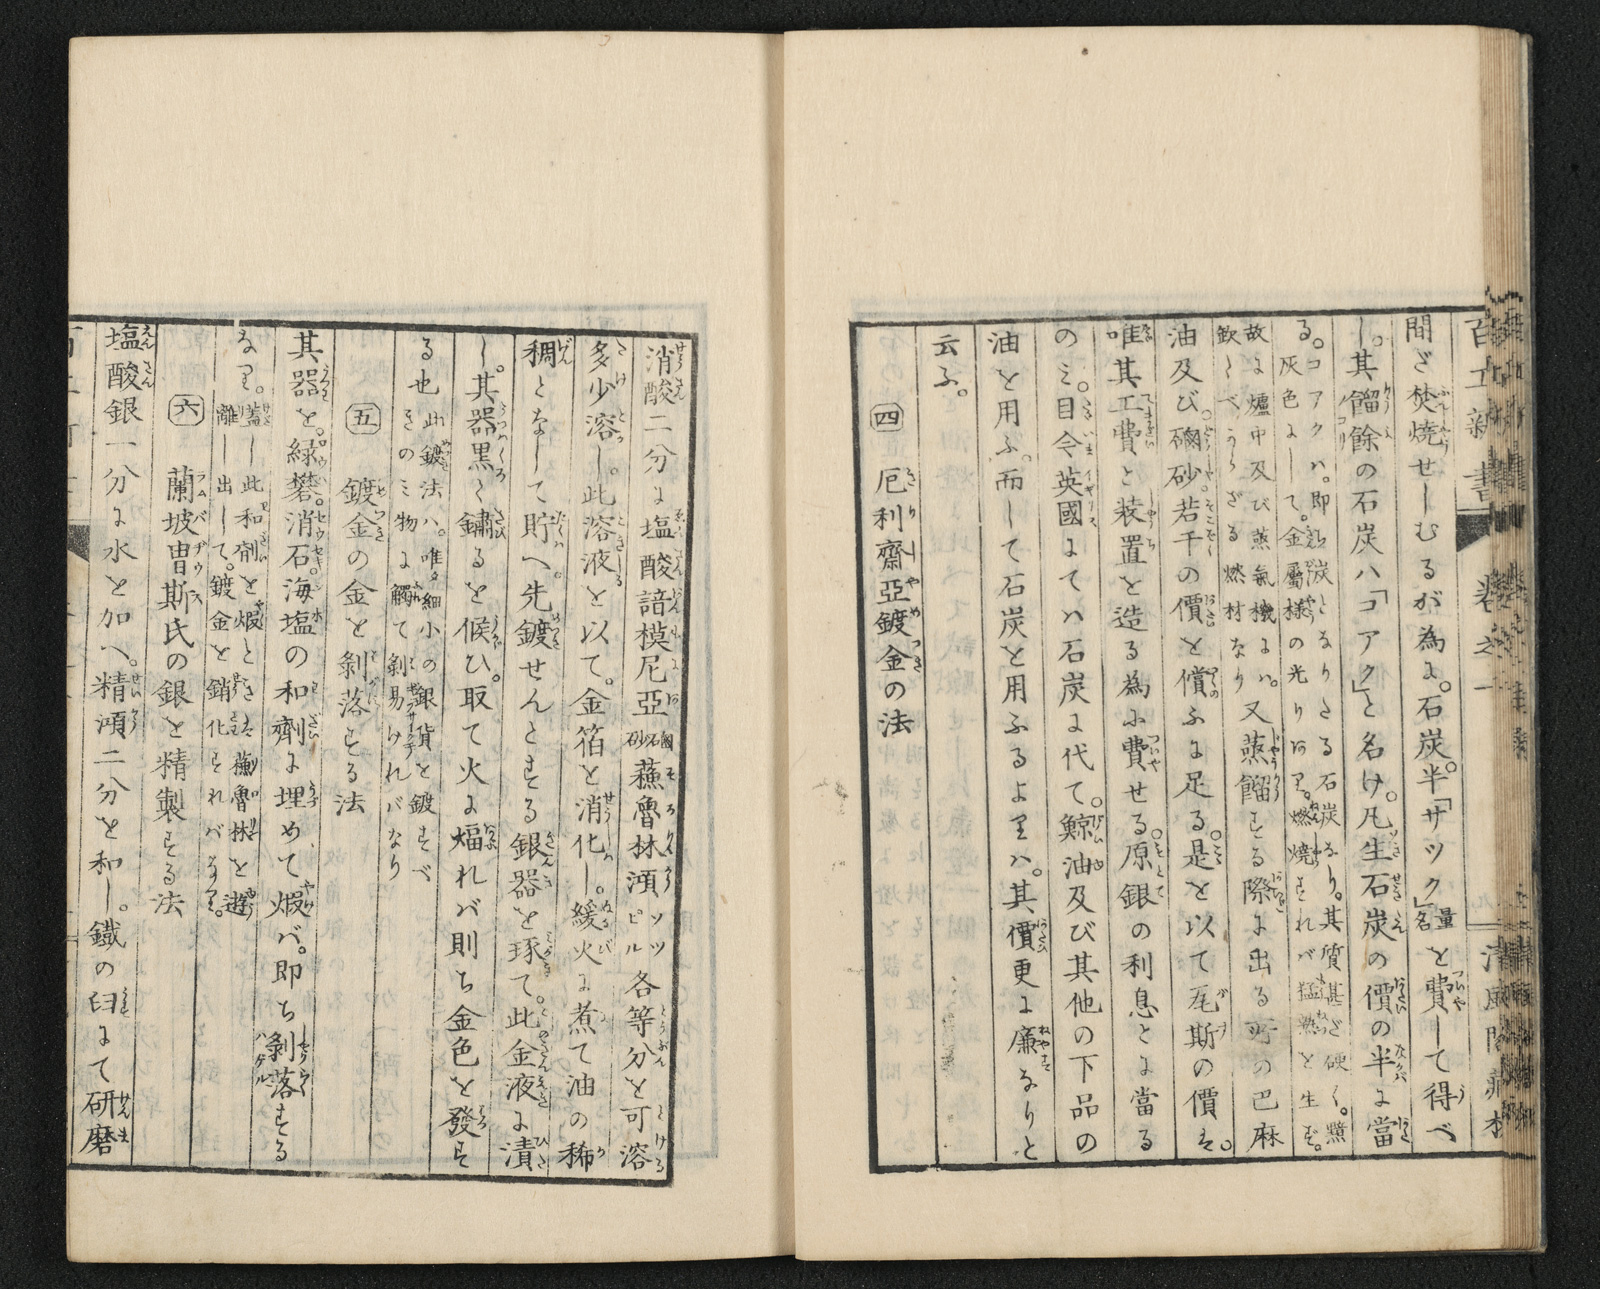 百工新書 卷之一 清風閣蔵板
間ざ焚焼せしむるが為に。石炭。半「サック」量名を費して得べ
し。其餾餘の石炭ハ「コアク」と名け。凡生石炭の價の半に當
る。コアクハ。即ち炭となりたる石炭なり。其質甚ざ硬く。黯
灰色にして。金屬様の光りあり。燃焼すれバ猛熱を生ず。
故に爐中及び蒸氣機にハ。又蒸餾する際に出る所の巴麻
欽くべからざる燃材なり
油及び磠砂若干の價を償ふに足る。是を以て瓦斯の價ハ。
唯其工費と装置を造る為に費せる。原銀の利息とに當る
のミ。目今英國にてハ石炭に代て。鯨油及び其他の下品の
油を用ふ。而して石炭を用ふるよりハ。其價更に廉なりと
云ふ。
四 厄利齋亞鍍金の法
消酸二分に塩酸諳模尼亞磠砂蘓魯林澒ソツピル各等分を可溶
多少溶し。此溶液を以て。金箔を消化し。緩火に煮て油の稀
稠となして貯へ。先鍍せんとする銀器を琢て。此金液に漬
し。其器黒く鏽るを候ひ。取て火に煏れバ則ち金色を發す
る也 此鍍法ハ。唯細小の銀貨を鍍すべ
きのミ物に觸て剝易けれバなり
五 鍍金の金を剝落する法
其器を。緑礬。消石。海塩の和劑に埋めて煆バ。即ち剝落する
なり。蓋し此和劑を煆ときハ蘓魯林を遊
離し出して。鍍金を銷化すれバなり。
六 蘭坡曹斯氏の銀を精製する法
塩酸銀一分に水を加へ。精澒二分を和し。鐵の臼にて研磨